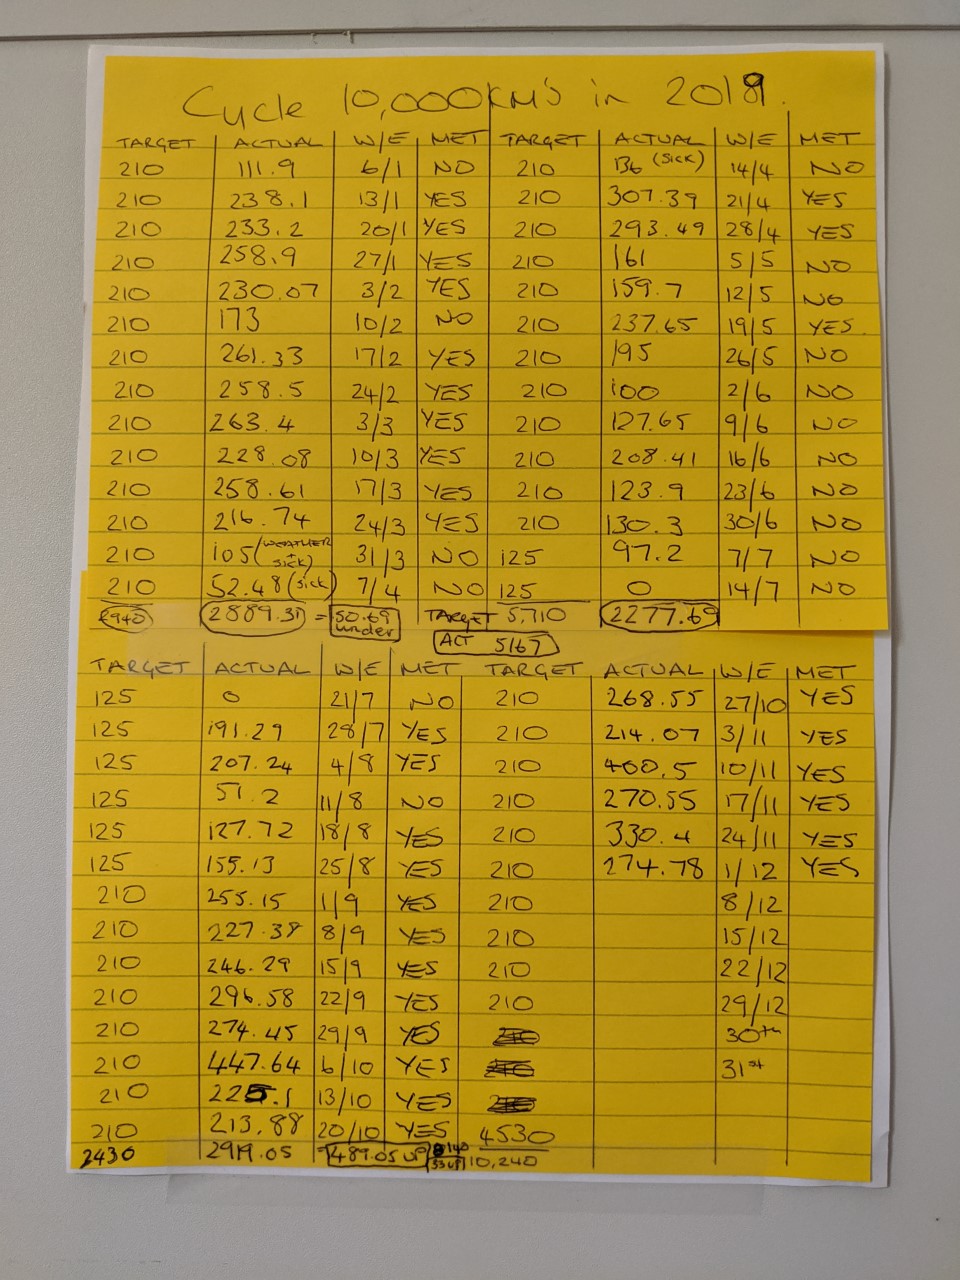 Cycle 10,000KM'S in 2019.
TARGET ACTUAL W/E MET TARGET ACTUAL W/E MET
210 111.9 6/1 NO 210 136 (SICK) 14/4 NO
210 238.1 13/1 YES 210 307.39 21/4 YES
210 233.2 20/1 YES 210 293.49 28/4 YES
210 258.9 27/1 YES 210 161 5/5 NO
210 230.07 3/2 YES 210 159.7 12/5 NO
210 173 10/2 NO 210 237.65 19/5 YES.
210 261.33 17/2 YES 210 195 26/5 NO
210 258.5 24/2 YES 210 100 2/6 NO
210 263.4 3/3 YES 210 127.65 9/6 NO
210 228.08 10/3 YES 210 208.41 16/6 NO
210 258.61 17/3 YES 210 123.9 23/6 NO
210 216.74 24/3 YES 210 130.3 30/6 NO
210 105 (WEATHER + SICK) 31/3 NO 125 97.2 7/7 NO
210 52.48 (SICK) 7/4 NO 125 0 14/7 NO
2940 2889.31 = 50.69 under TARGET 5,710 2277.69
ACT 5167
TARGET ACTUAL W/E MET TARGET ACTUAL W/E MET
125 0 21/7 NO 210 268.55 27/10 YES
125 191.29 28/7 YES 210 214.07 3/11 YES
125 207.24 4/8 YES 210 400.5 10/11 YES
125 51.2 11/8 NO 210 270.55 17/11 YES
125 127.72 18/8 YES 210 330.4 24/11 YES
125 155.13 25/8 YES 210 274.78 1/12 YES
210 255.15 1/9 YES 210 8/12
210 227.38 8/9 YES 210 15/12
210 246.29 15/9 YES 210 22/12
210 296.58 22/9 YES 210 29/12
210 274.45 29/9 YES 210 30th
210 447.64 6/10 YES 210 31st
210 225.1 13/10 YES 210
210 213.88 20/10 YES 4530
2430 2919.05 489.05 UP 10,240